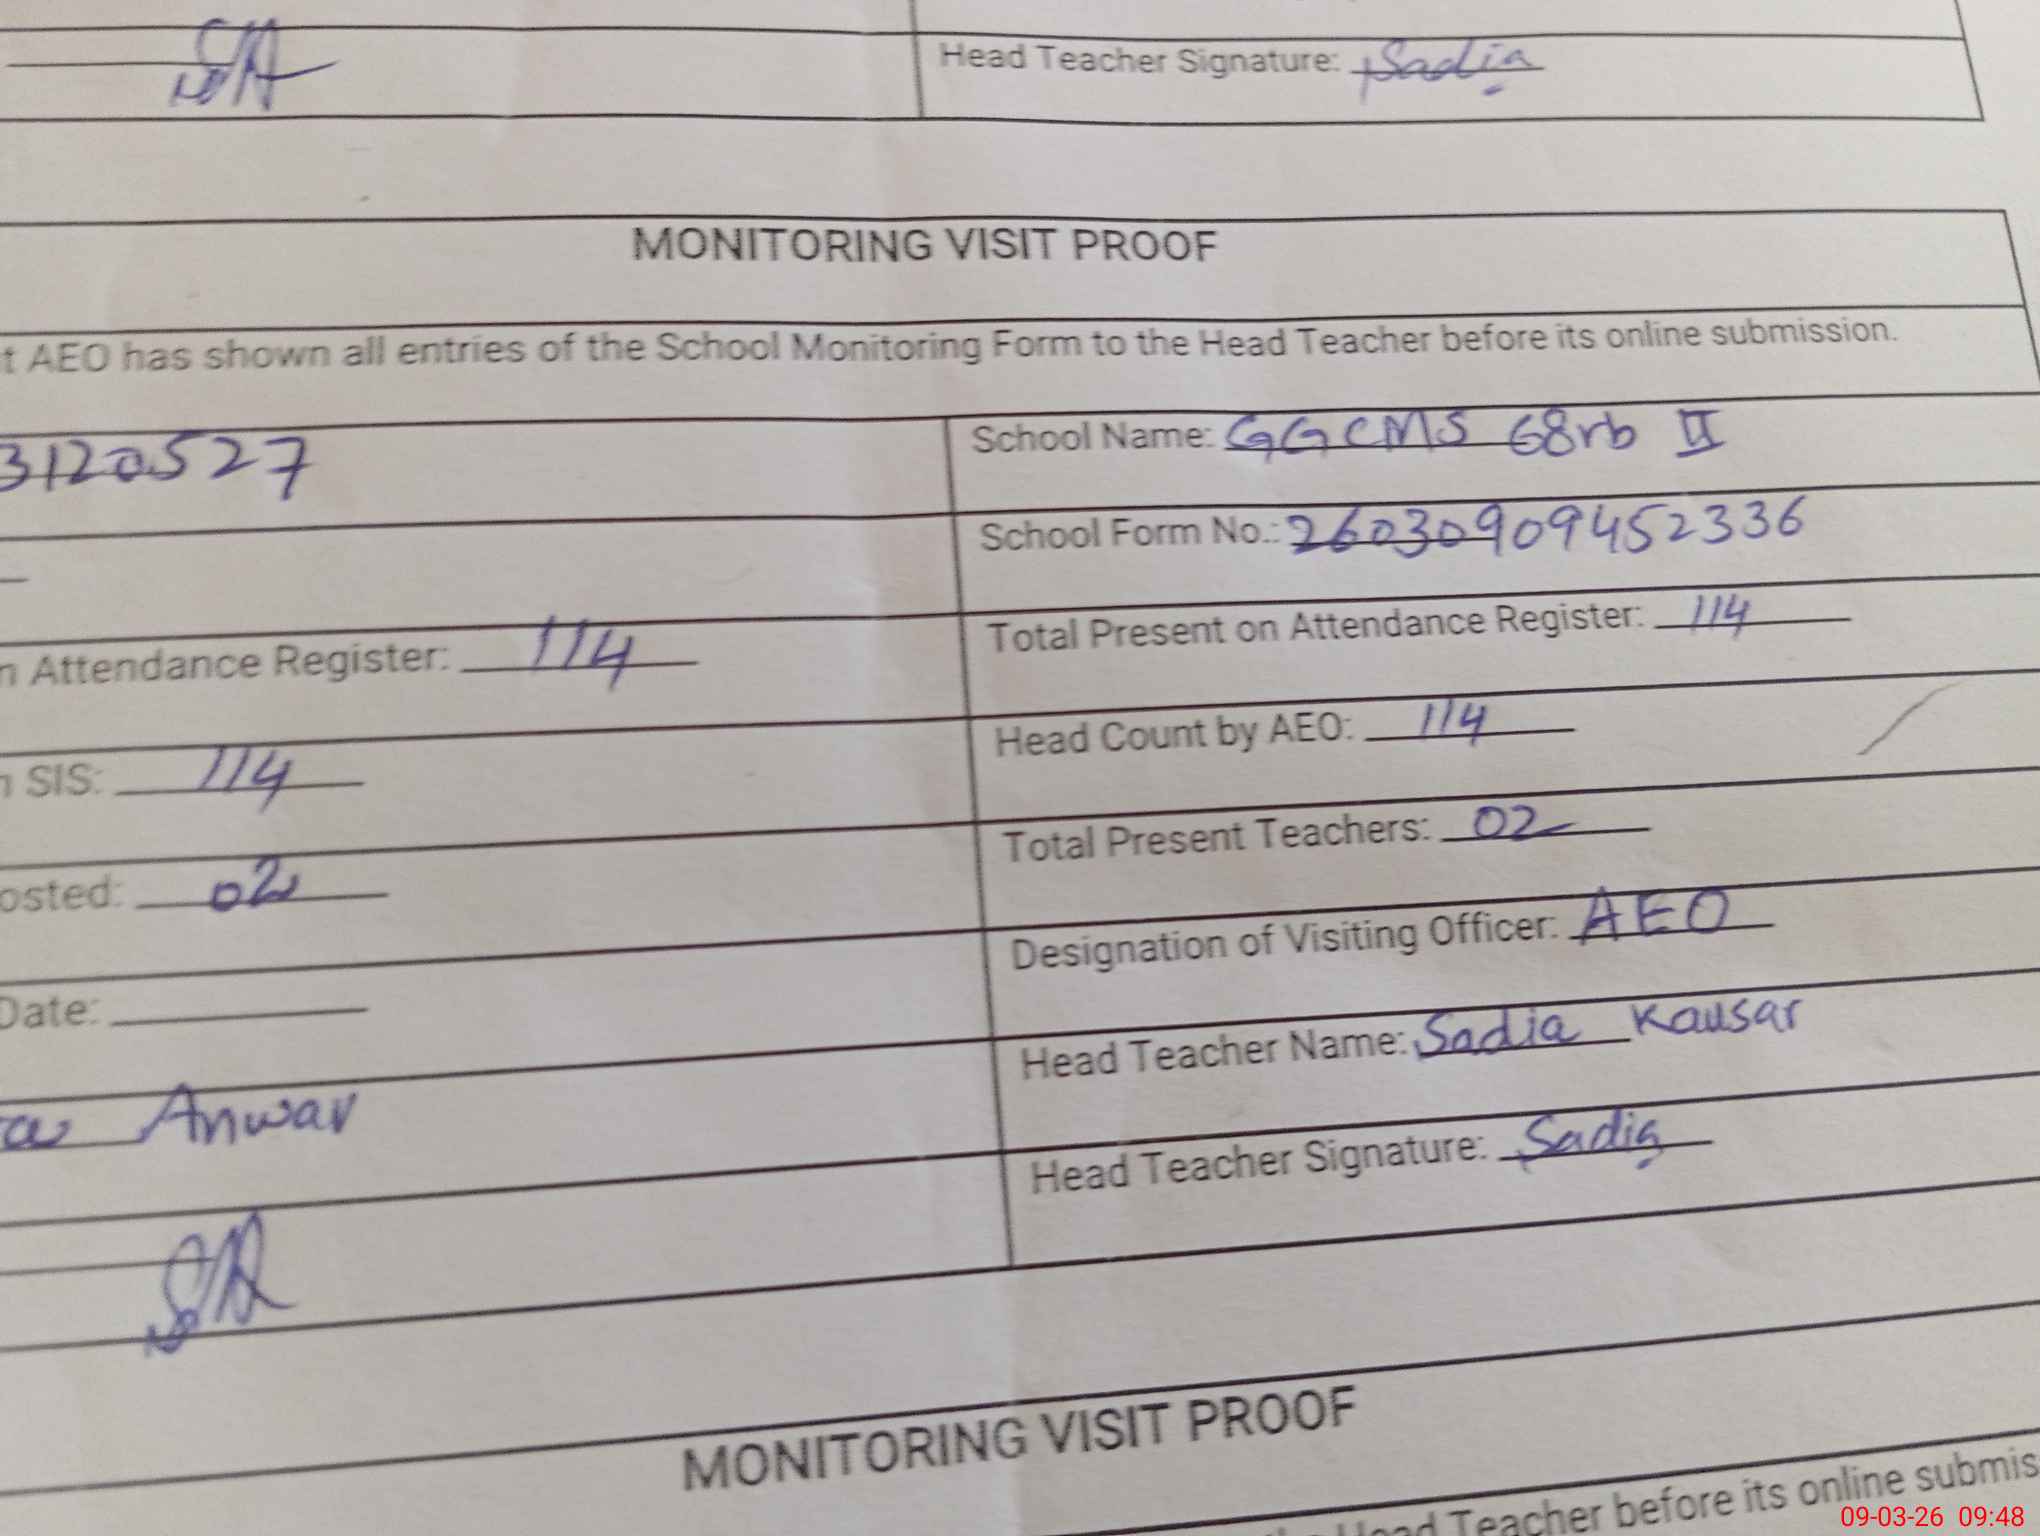 Head Teacher Signature: Sadia
MONITORING VISIT PROOF
t AEO has shown all entries of the School Monitoring Form to the Head Teacher before its online submission.
3120527
School Name: GGCMS 68rb II
School Form No.: 26030909452336
n Attendance Register: 114
Total Present on Attendance Register: 114
n SIS: 114
Head Count by AEO: 114
osted: 02
Total Present Teachers: 02
Designation of Visiting Officer: AEO
Date:
Head Teacher Name: Sadia Kausar
Anwar
Head Teacher Signature: Sadia
MONITORING VISIT PROOF
Head Teacher before its online submis
09-03-26 09:48